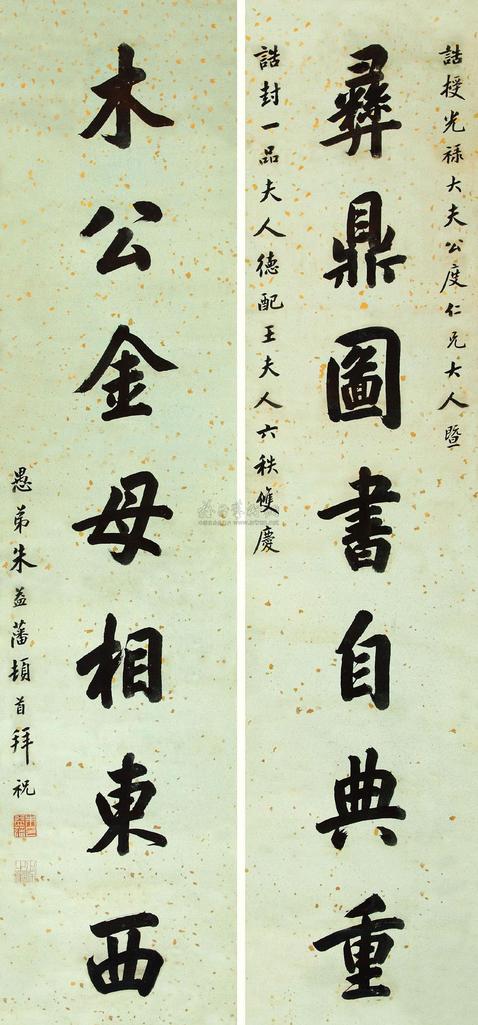 誥授光祿大夫公度仁兄大人暨
彝鼎圖書自典重
誥封一品夫人德配王夫人六秩雙慶
木公金母相東西
愚弟朱益藩頓首拜祝